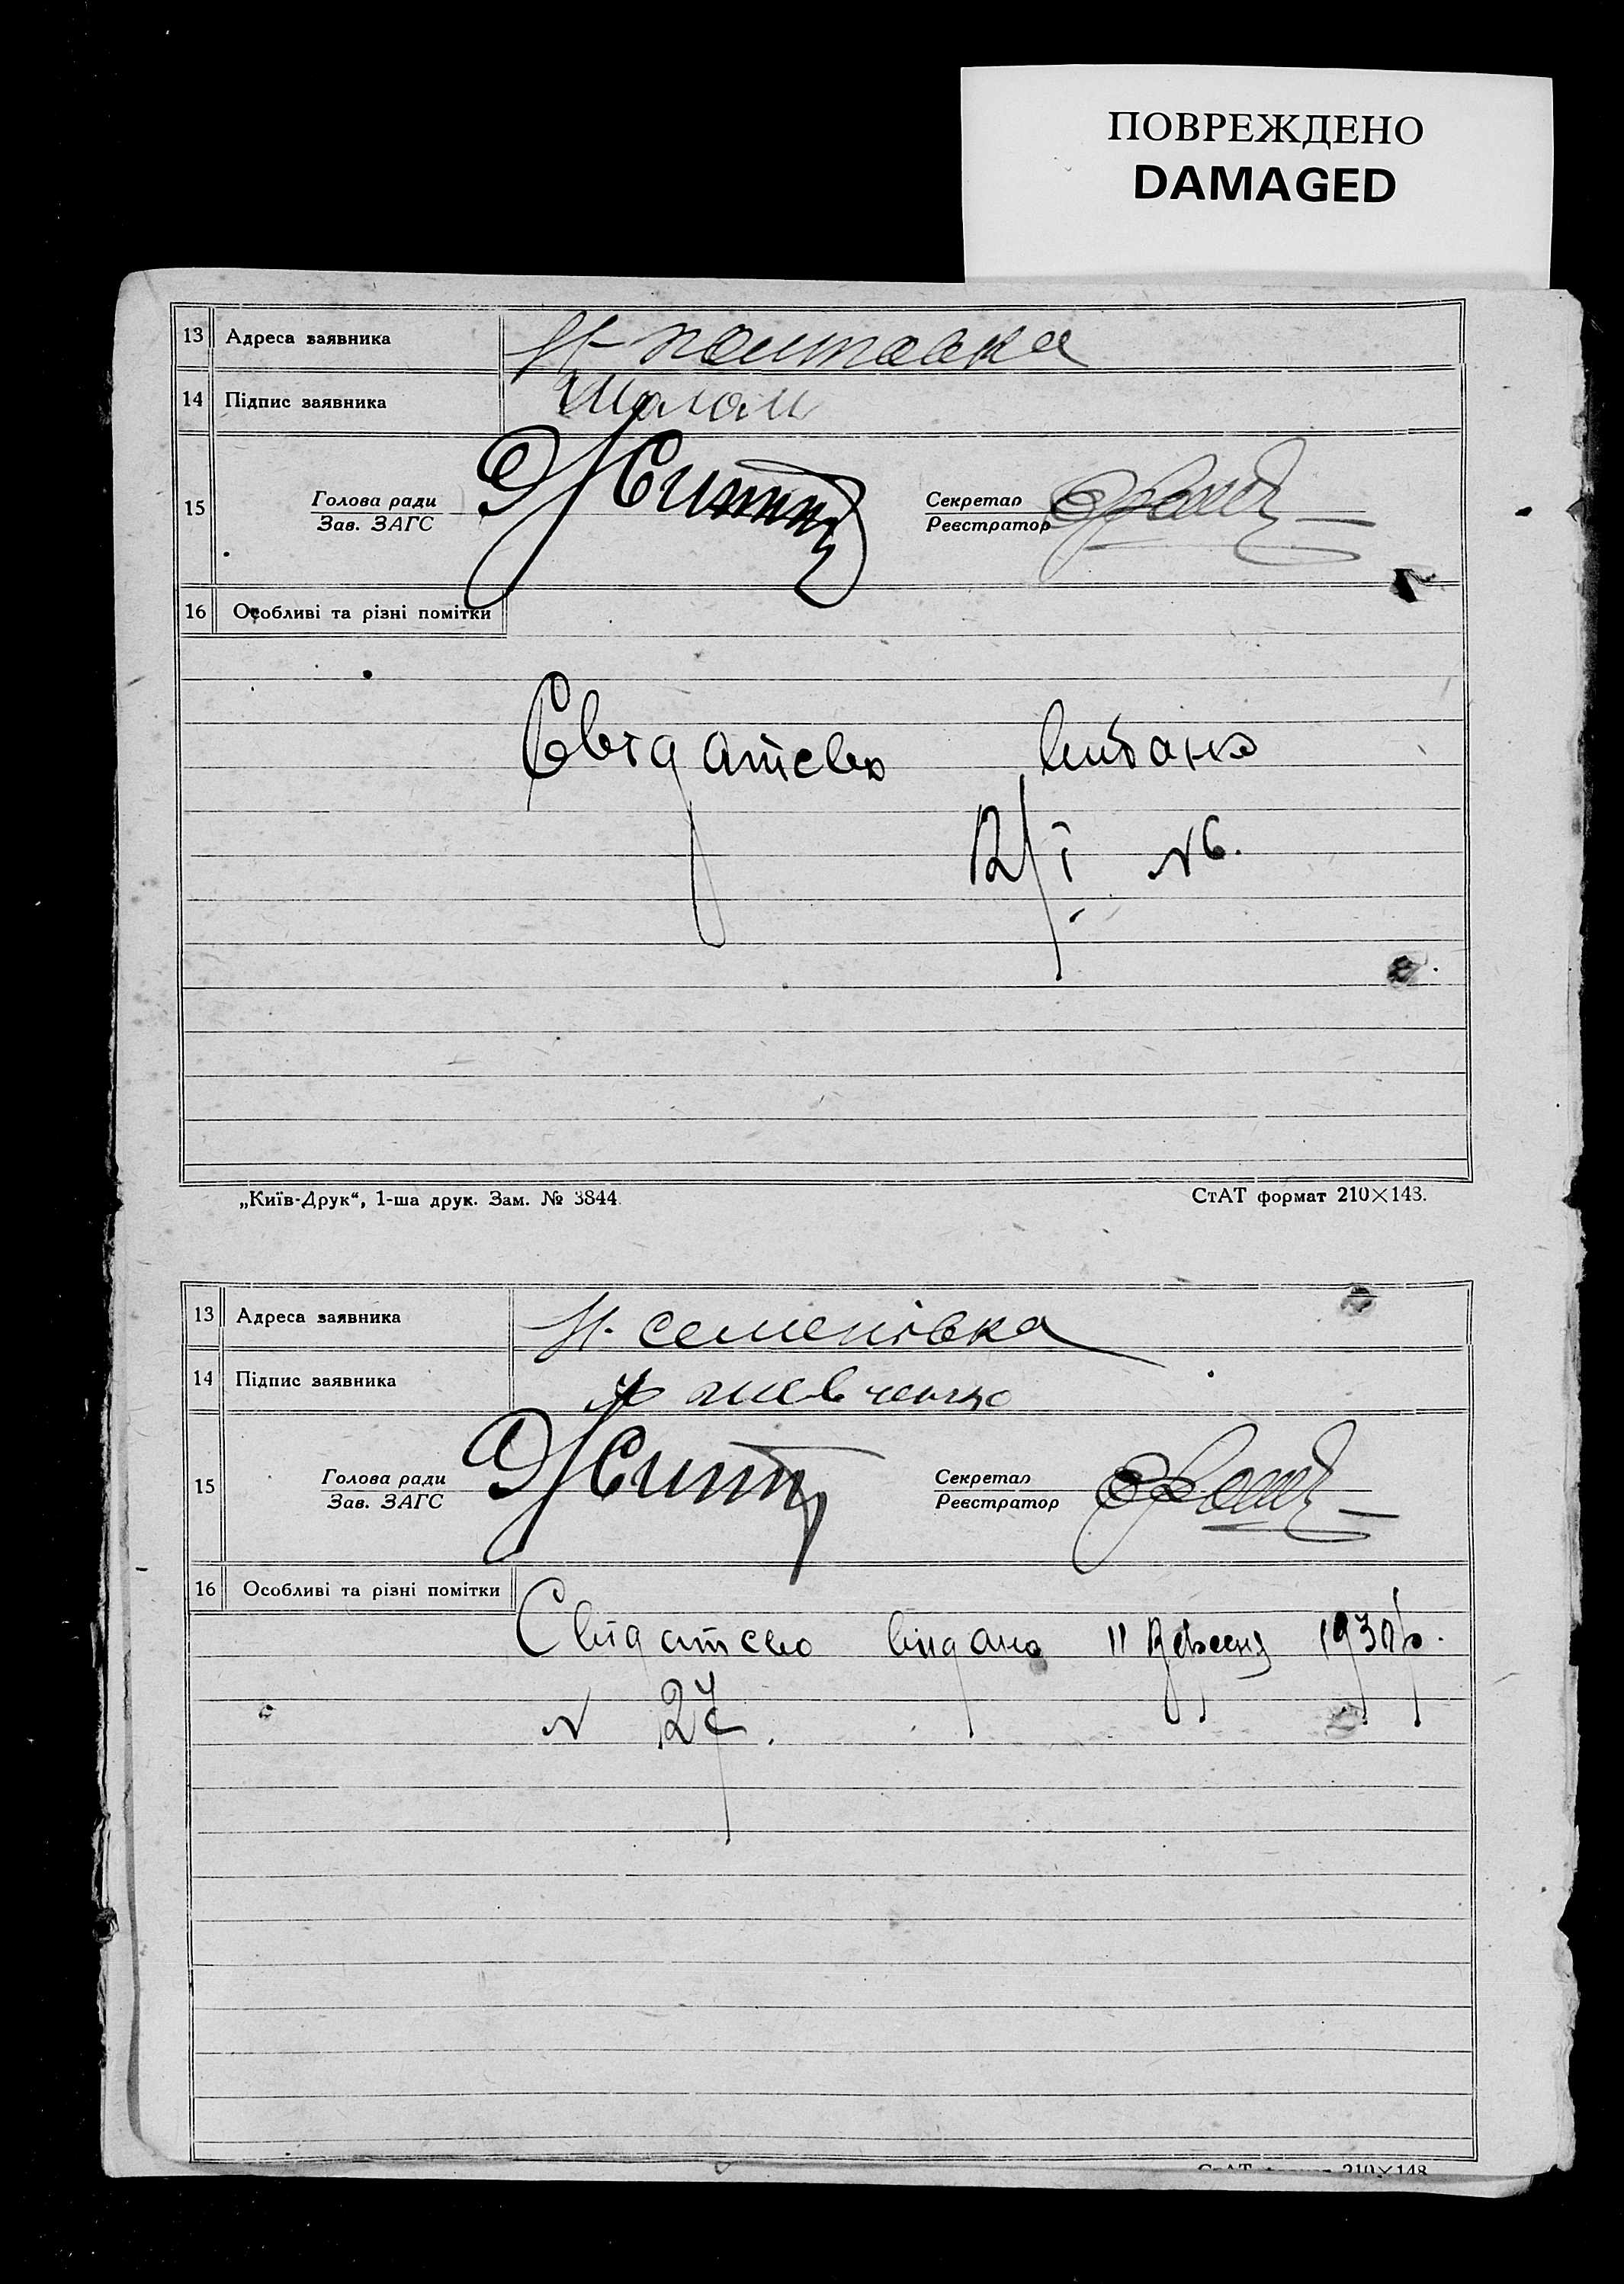 ПОВРЕЖДЕНО
DAMAGED
13 Адреса заявника Н-полтавка
14 Підпис заявника
15 Голова ради
Зав. ЗАГС
Секретар
Реєстратор
16 Особливі та різні помітки
Свідатсво видано
12/І №6.
„Київ-Друк“, 1-ша друк. Зам. № 3844.
СтАТ формат 210×148.
13 Адреса заявника Н. семенівка
14 Підпис заявника шевченко
15 Голова ради
Зав. ЗАГС
Секретар
Реєстратор
16 Особливі та різні помітки
Свідатсво видано 11 вересня р.
№ 27.
СтАТ формат 210×148